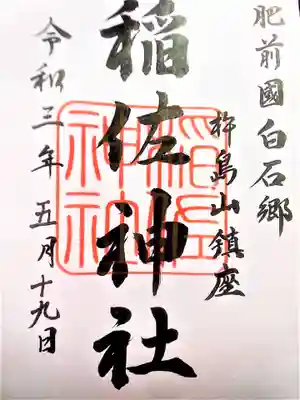 肥前國白石郷
杵島山鎮座
稲佐神社
令和三年五月十九日
稲佐神社